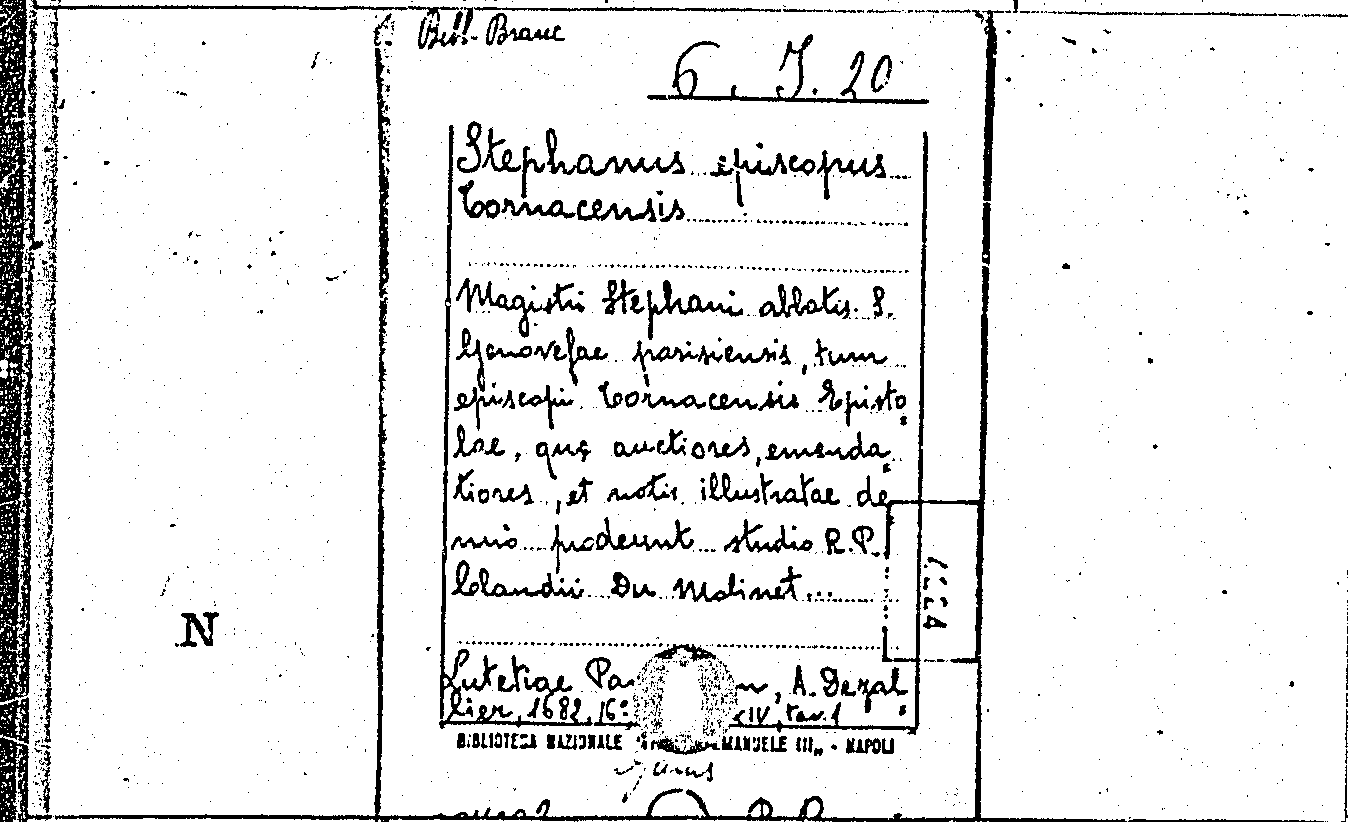 Bibl. Branc
6. J. 20
Stephanus episcopus
Tornacensis
Magistri Stephani abbatis S.
Genovefae parisiensis, tum
episcopi Tornacensis Episto
lae, quę auctiores, emenda
tiores, et notis illustratae de
nuo prodeunt studio R.P.
Claudii Du Molinet...
Lutetiae A. Dezal
lier, 1682, 16° XIV, tav. 1
BIBLIOTECA NAZIONALE EMANUELE III„ - NAPOLI
N